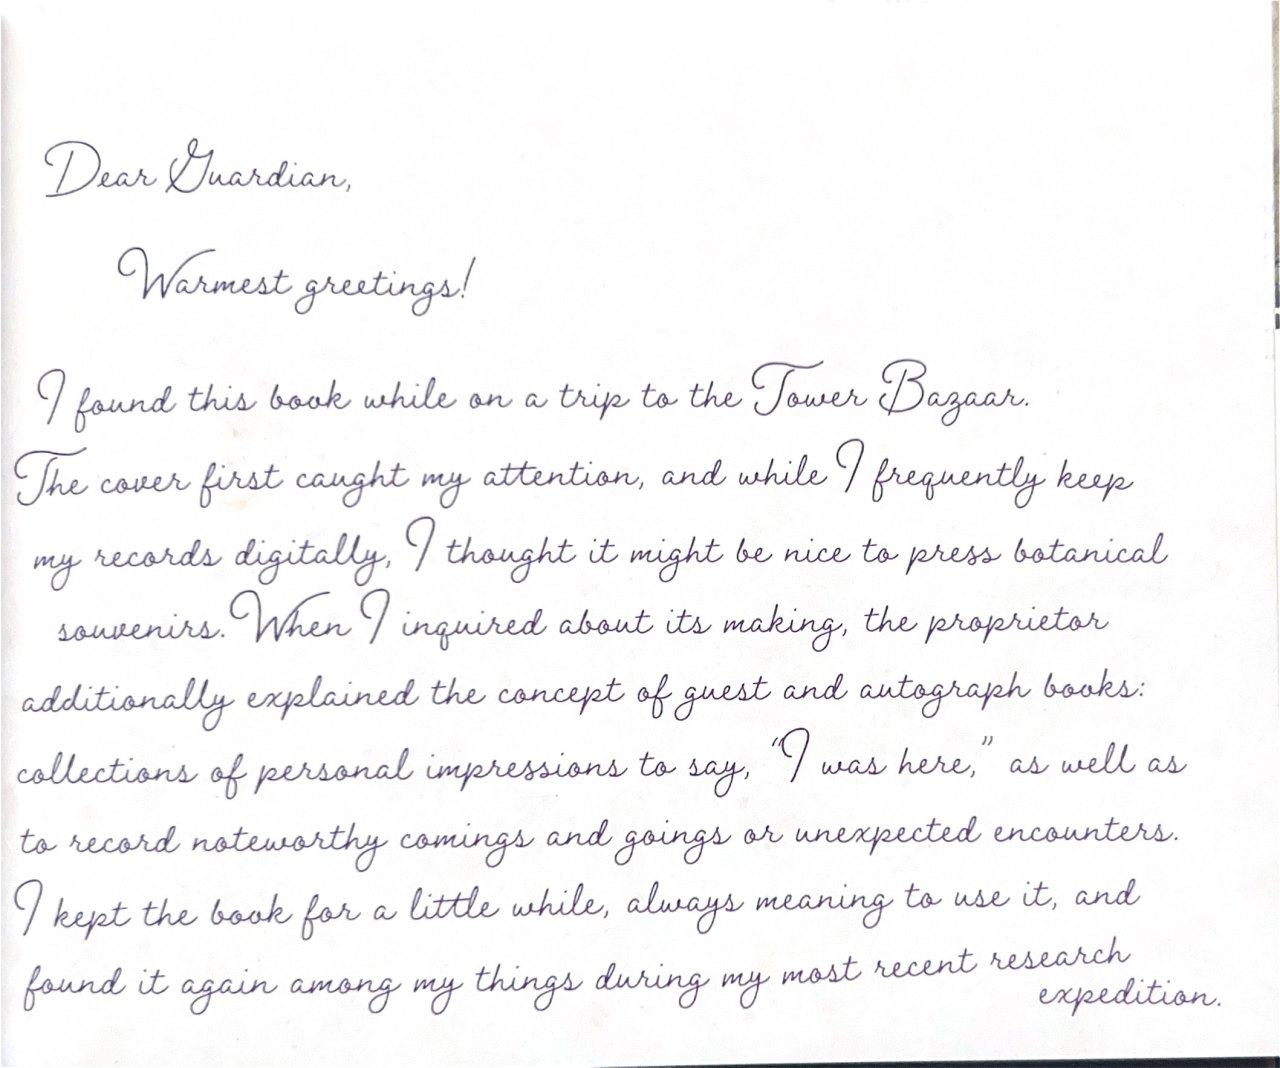 Dear Guardian,
Warmest greetings!
I found this book while on a trip to the Tower Bazaar.
The cover first caught my attention, and while I frequently keep
my records digitally, I thought it might be nice to press botanical
souvenirs. When I inquired about its making, the proprietor
additionally explained the concept of guest and autograph books:
collections of personal impressions to say, “I was here,” as well as
to record noteworthy comings and goings or unexpected encounters.
I kept the book for a little while, always meaning to use it, and
found it again among my things during my most recent research
expedition.